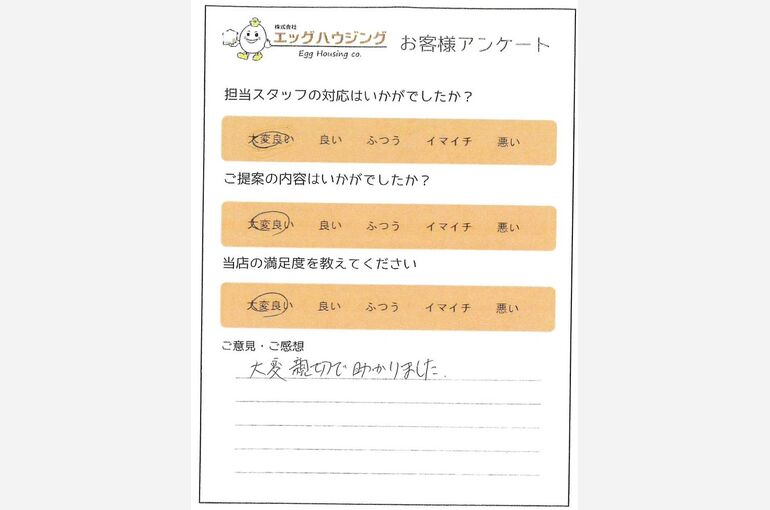 株式会社
エッグハウジング
Egg Housing co.
お客様アンケート
担当スタッフの対応はいかがでしたか？
大変良い 良い ふつう イマイチ 悪い
ご提案の内容はいかがでしたか？
大変良い 良い ふつう イマイチ 悪い
当店の満足度を教えてください
大変良い 良い ふつう イマイチ 悪い
ご意見・ご感想
大変親切で助かりました.